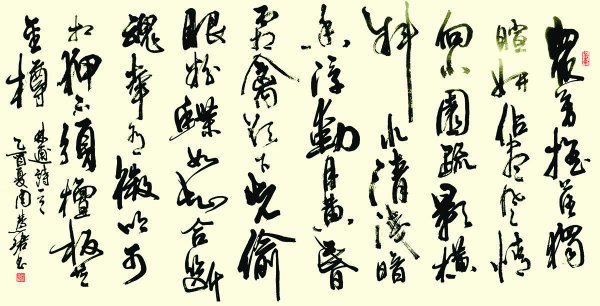 衆芳摇落獨
暄妍佔尽风情
向小園疏影横
斜水清浅暗
香浮動月黄昏
霜禽欲下先偷
眼粉蝶如知合断
魂幸有微吟可
相狎不須檀板共
金樽
林逋詩
乙酉夏